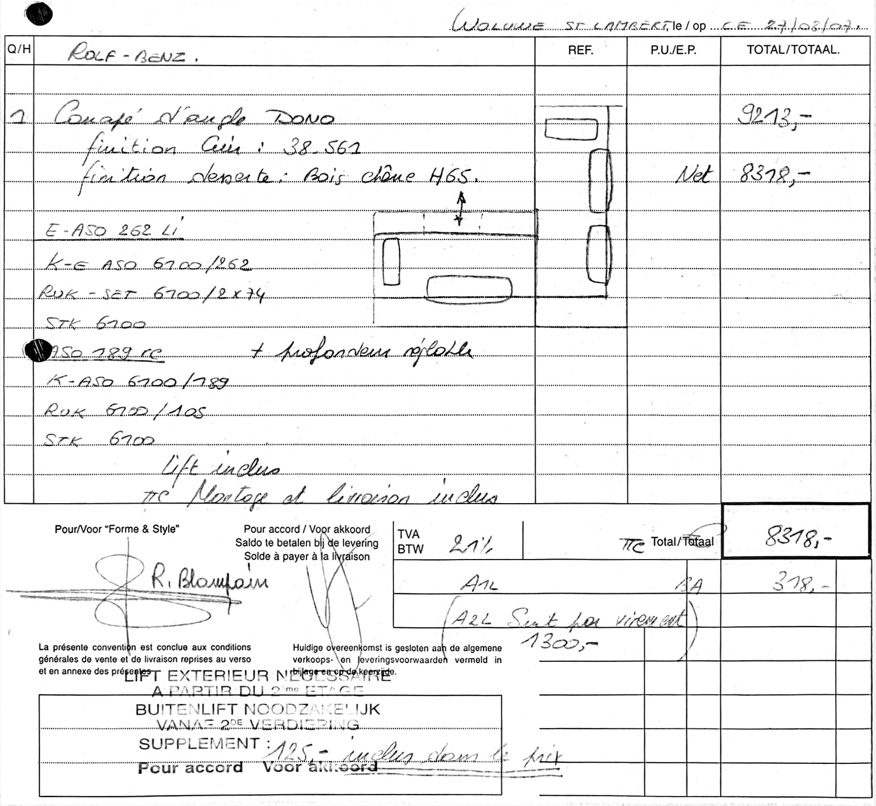 WOLUWE ST LAMBERT, le / op CE 27/08/07.
Q/H REF. P.U./E.P. TOTAL/TOTAAL.
ROLF-BENZ.
1 Canapé d'angle DONO 9213,-
finition Cuir : 38.561
finition desserte : Bois chêne H65. Net 8318,-
E-ASO 262 Li
K-E ASO 6100/262
RUK-SET 6100/2x74
STK 6100
ASO 189 re + profondeur réglable
K-ASO 6100/189
RUK 6100/105
STK 6100
Lift inclus
TTC Montage et livraison inclus
Pour/Voor "Forme & Style"
R. Blampain
Pour accord / Voor akkoord
Saldo te betalen bij de levering
Solde à payer à la livraison
TVA
BTW 21% TTC Total/Totaal 8318,-
A1L 318,-
(A2L par virement
1300,-)
La présente convention est conclue aux conditions
générales de vente et de livraison reprises au verso
et en annexe des présentes.
Huldige overeenkomst is gesloten aan de algemene
verkoops- en leveringsvoorwaarden vermeld in
bijlage en op de keerzijde.
LIFT EXTERIEUR NECESSAIRE
A PARTIR DU 2me ETAGE
BUITENLIFT NOODZAKELIJK
VANAF 2DE VERDIERING
SUPPLEMENT : 125,- inclus dans le prix
Pour accord Voor akkoord